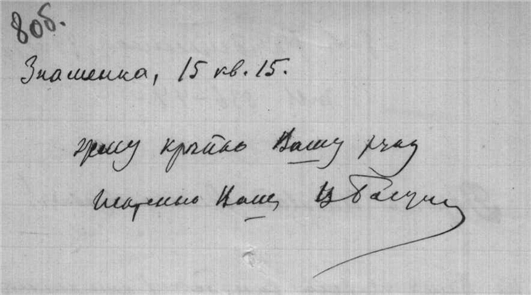 80б.
Знаменка, 15 кв. 15.
крепко Вашу руку
Искренно Ваш